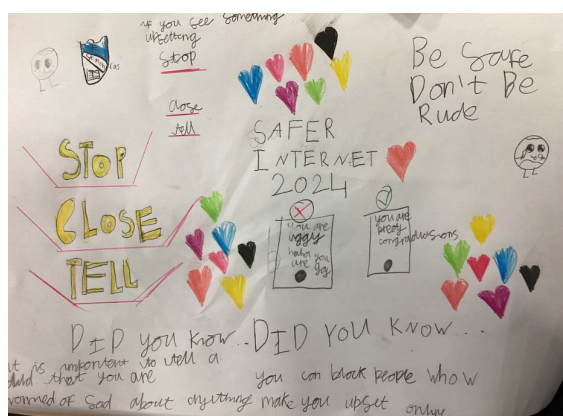 if you see something
upsetting
Stop
close
tell
Be Safe
Don't Be
Rude
SAFER
INTERNET
2024
STOP
CLOSE
TELL
you are
uggy
haha you
are
you are
preety
congradulasions
DID you know..
it is important to tell a
that you are
of sad about anything
DID YOU KNOW...
you can block people who
make you upset online